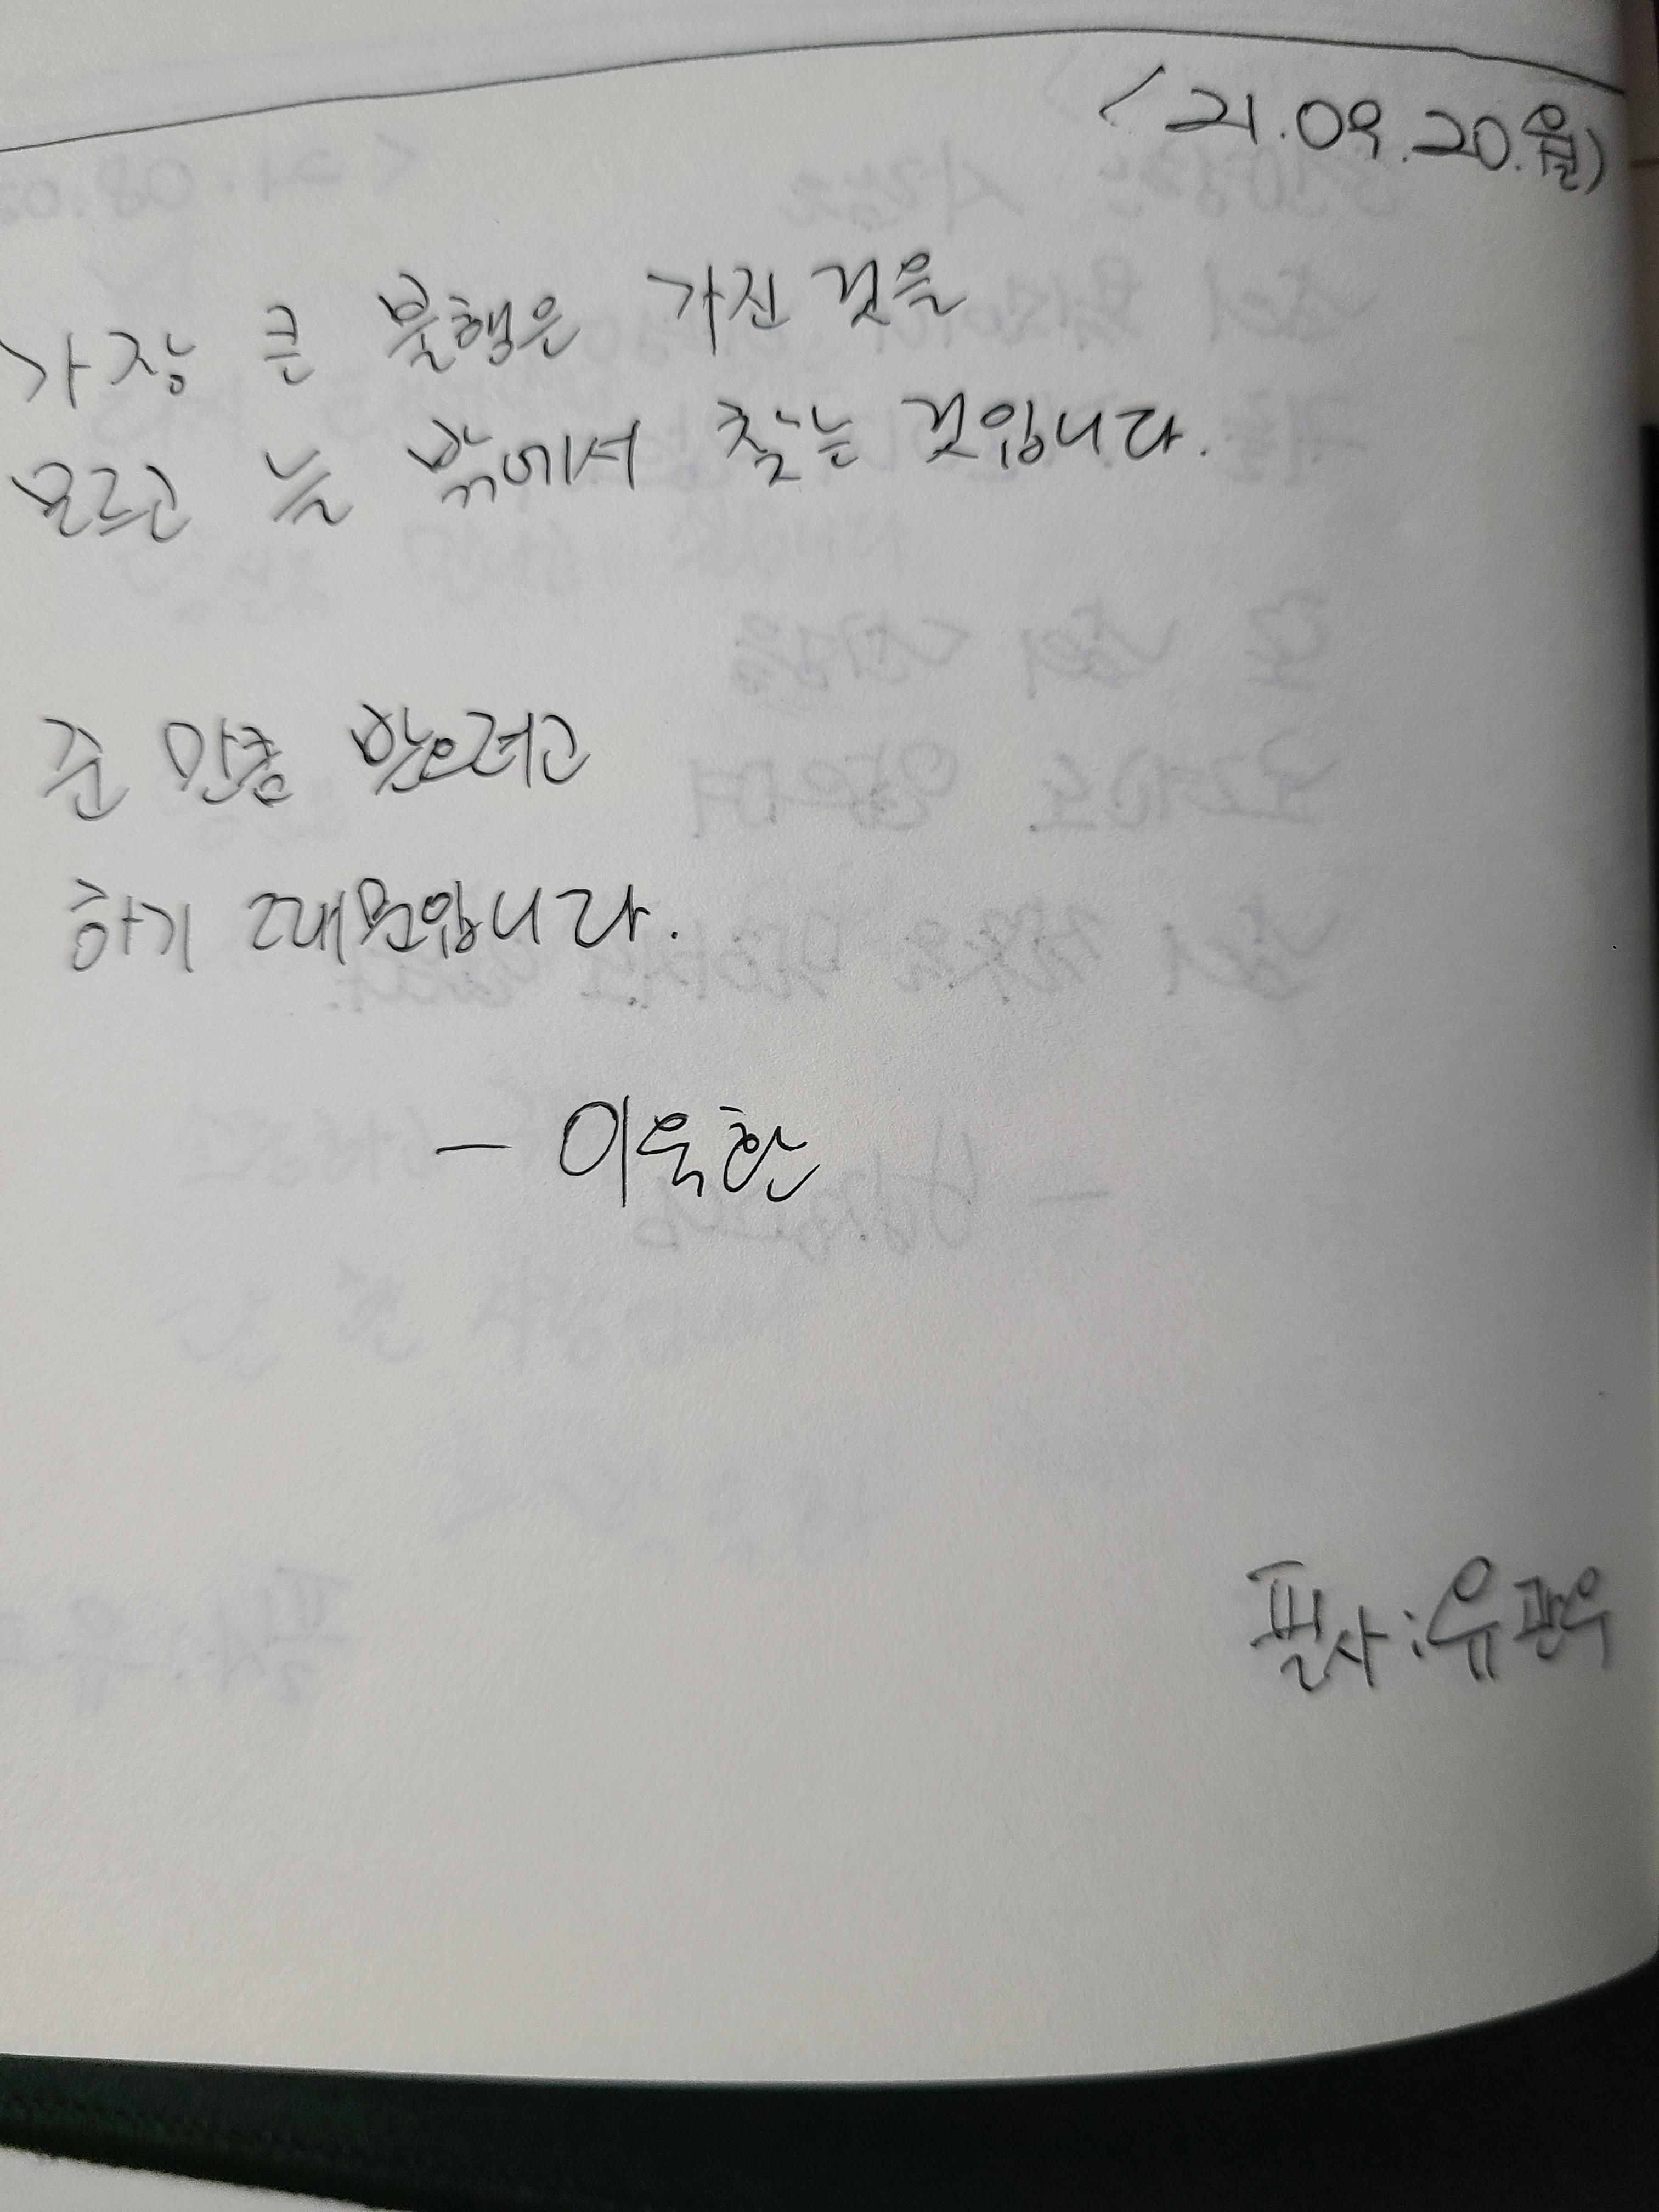 <21.09.20.월)
가장 큰 불행은 가진 것을
모르고 늘 밖에서 찾는 것입니다.
준 만큼 받으려고
하기 때문입니다.
- 이욱한
필사:유관우